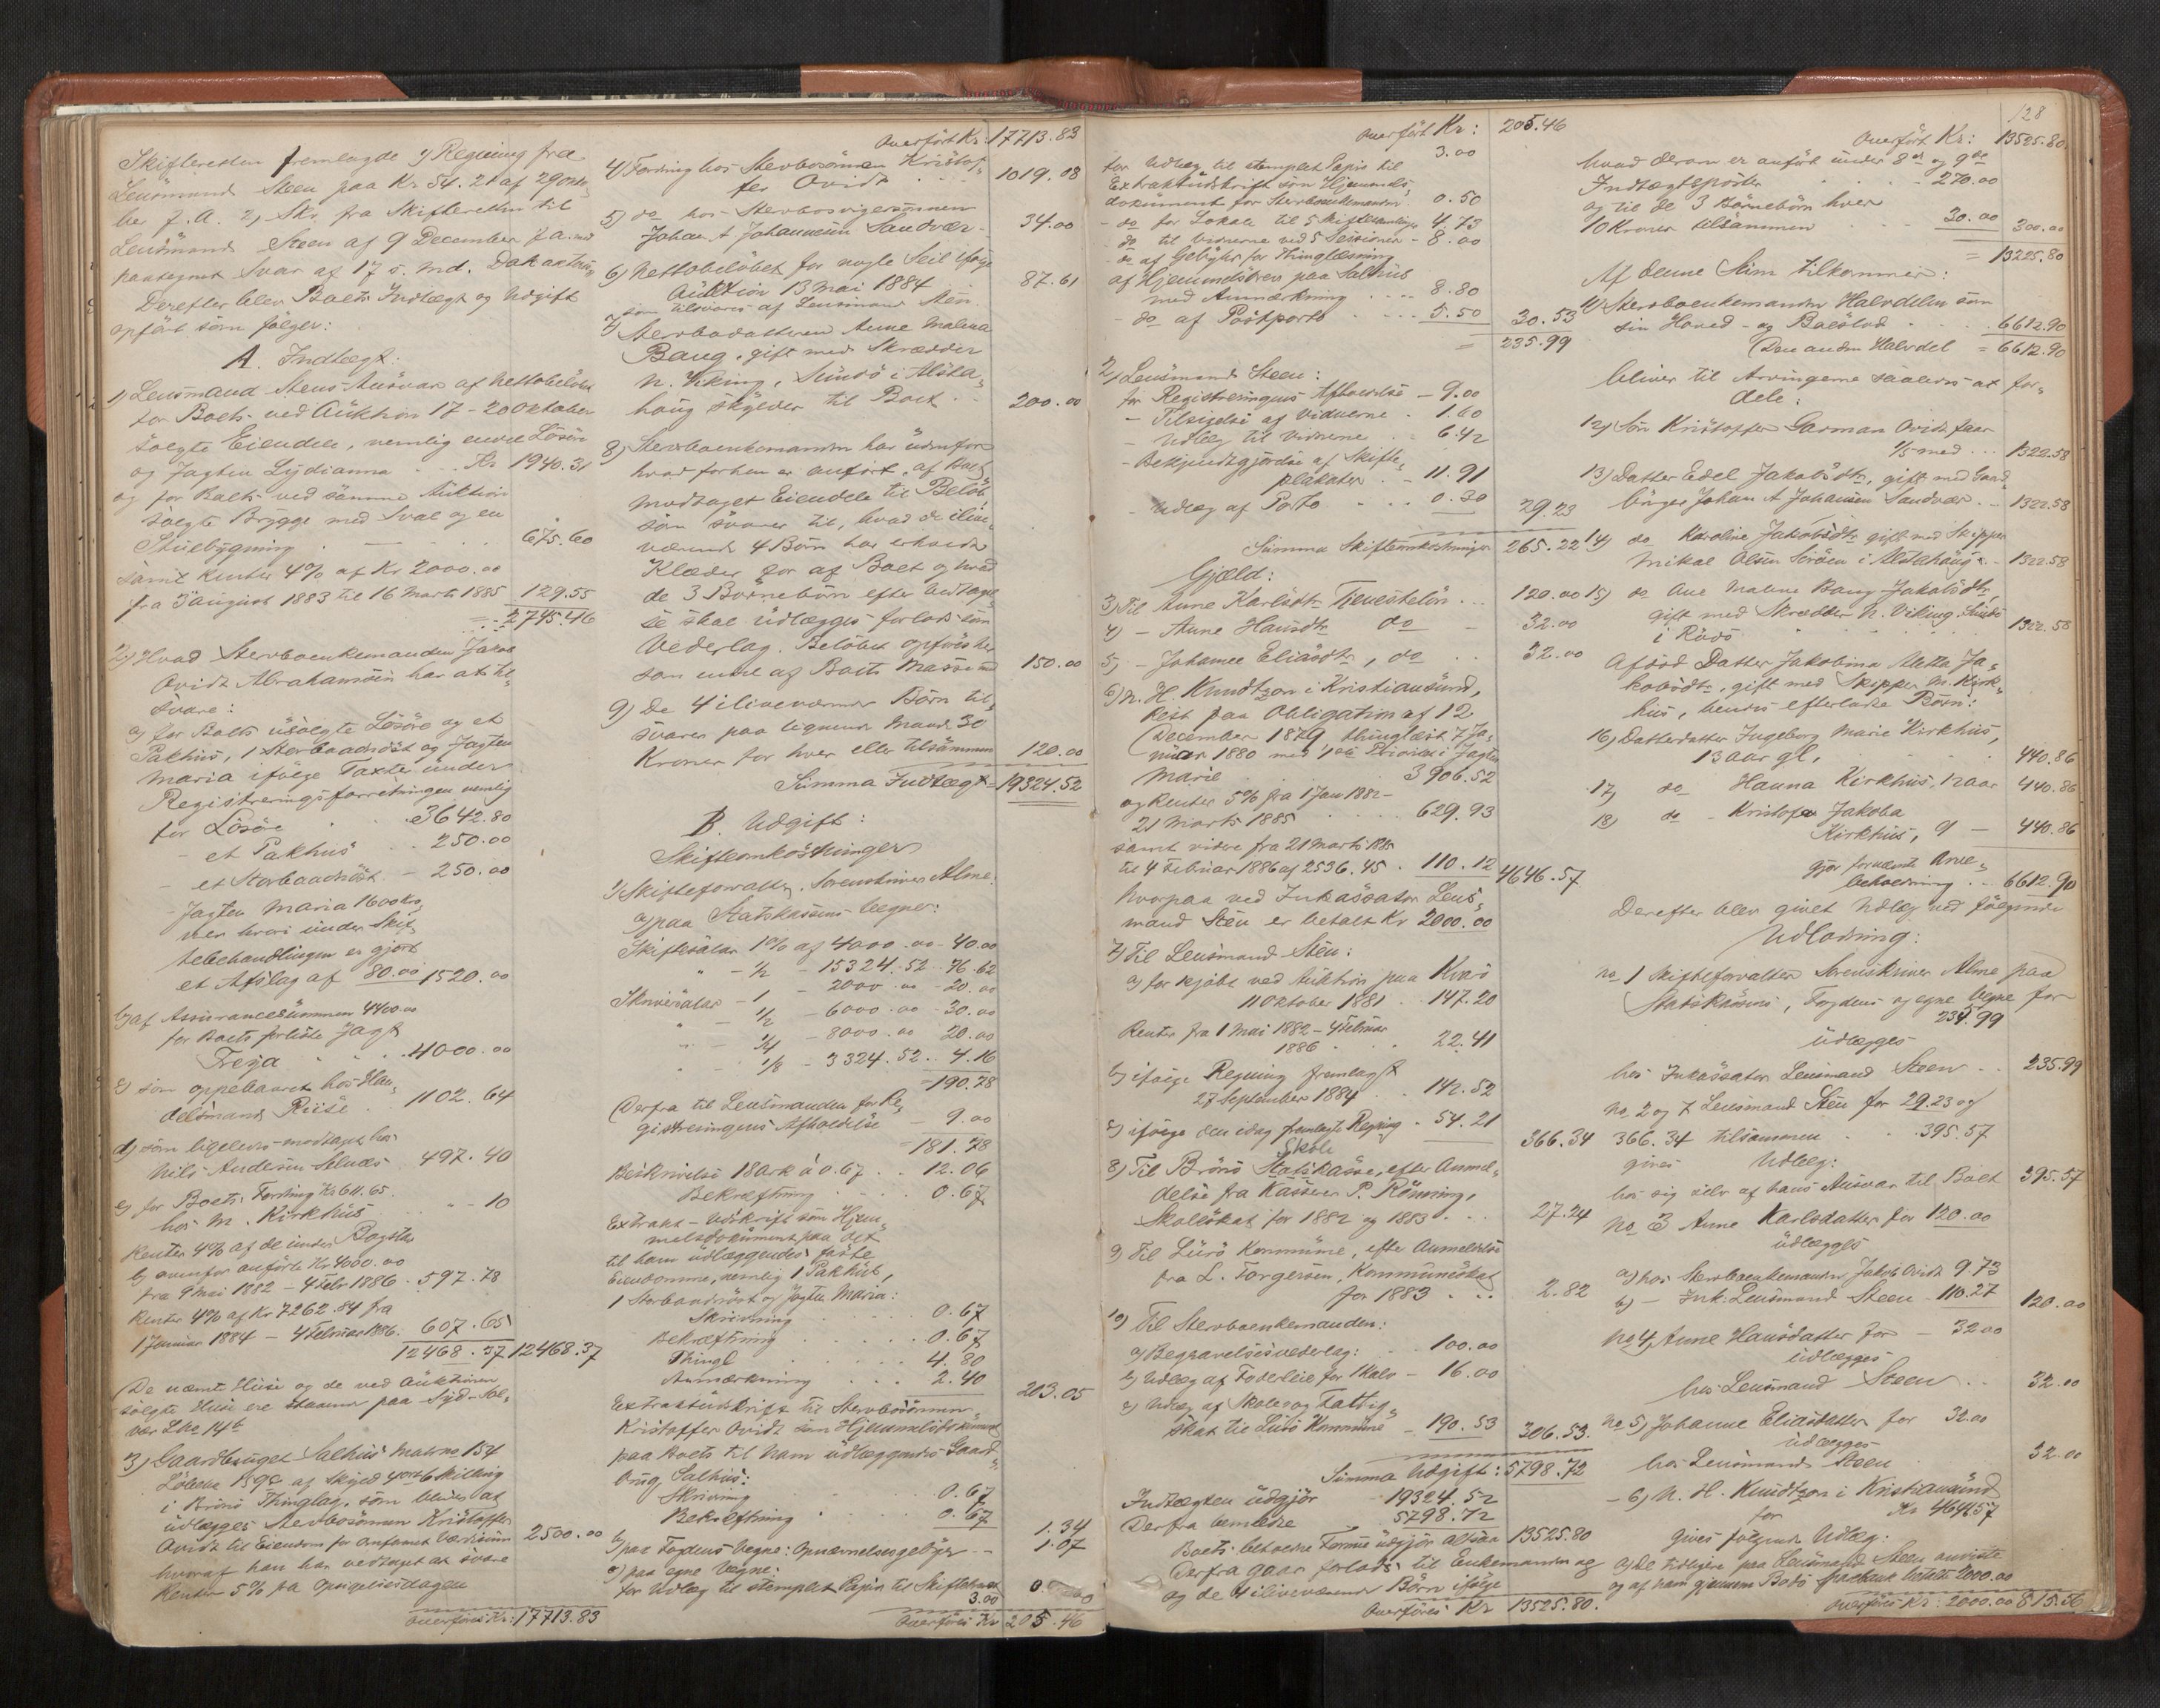 Skifteretten fremlagde 1) Regning fra
Lensmand Steen paa Kr 54.21 af 29 Okto-
ber f. A. 2) Skr. fra Skifteretten til
Lensmand Steen af 9 December f. A. med
paategnet Svar af 17 s. Md.
Derefter blev Boets Indtægt og Udgift
opført som følger:
A. Indtægt:
1) Lensmand Steens Ansvar af Nettobeløbet
for Boets ved Auktion 17-20 Oktober
solgte Eiendele, nemlig Løsøre
og Jagten Lydianna . . Kr 1940.31
og for Boets ved samme Auktion
solgte Brygge med Sval og en
Stuebygning . . . 675.60
samt Renter 4% af Kr 2000.00
fra 3 August 1883 til 16 Marts 1885 129.55
= 2745.46
2) Hvad Stervboenkemanden Jakob
Ovidt Abrahamsen har at til-
svare:
a) for Boets usolgte Løsøre og et
Pakhus, 1 Storbaadnøst og Jagten
Maria ifølge Taxter under
Registreringsforretningen nemlig
for Løsøre . . 3642.80
- et Pakhus . . 250.00
- et Storbaadnøst - 250.00
- Jagten Maria 1600 Kro-
ner hvori under Skif-
tebehandlingen er gjort
et Afslag af 80.00 1520.00
b) af Assurancesummen 4400.00
for Boets forliste Jagt
Freya . . . 4000.00
c) som oppebaaret hos Han-
delsmand Riise . 1102.64
d) som ligeledes modtaget hos
Nils Andersen Selnæs 497.40
e) for Boets Fordring Kr 611.65
hos M. Kirkhus . . " - 10
Renter 4% af de under Bogstav
b) ovenfor anførte Kr 4000.00
fra 9 Mai 1882 - 4 Febr 1886 . 597.78
Renter 4% af Kr 7262.84 fra
1 Januar 1884 - 4 Februar 1886. 607.65
12468.37 12468.37
De nævnte Huse og de ved Auktionen
solgte Huse ere staaende paa Syd-Sol-
vær Lno 14b
3) Gaardbruget Salhus Matr no 154
Løbeno 159c af Skyld 4 ort 6 Skilling
i Brønø Thinglag, som bliver at
udlægges Stervbosønnen Kristoffer
Ovidt til Eiendom for omforenet Værdisum 2500.00
hvoraf han har vedtaget at svare
Renter 5% fra Opsigelsesdagen
Overføres Kr: 17713.83

Overført Kr: 17713.83
4) Fordring hos Stervbosønnen Kristof-
fer Ovidt . . . 1019.08
5) do hos Stervbosvigersønnen
Johan A Johannesen Sandvær - 34.00
6) Nettobeløbet for nogle Seil ifølge
Auktion 13 Mai 1884 . . 87.61
som tilsvares af Lensmand Steen.
7) Stervbodatteren Anne Malena
Bang, gift med Skrædder
N. Viking, Sundø i Alsta-
haug skylder til Boet . . 200.00
8) Stervboenkemanden har udenfor
hvad forhen er anført, af Boet
modtaget Eiendele til Beløb,
som svarer til, hvad de ilive-
værende 4 Børn har erholdt
Klæder for af Boet og hvad
de 3 Børnebørn efter Vedtagel-
se skal udlægges forlods som
Vederlag. Beløbet opføres her
som endel af Boets Masse med 150.00
9) De 4 iliveværende Børn til-
svarer paa lignende Maade 30
Kroner for hver eller tilsammen 120.00
Summa Indtægt = 19324.52
B. Udgift:
Skifteomkostninger
1) Skifteforvalter, Sorenskriver Alme:
a) paa Statskassens Vegne:
Skiftesalær 1% af 4000.00 - 40.00
" - 1/2 - 15324.52 - 76.62
Skriversalær - 1 - 2000.00 - 20.00
" - 1/2 - 6000.00 - 30.00
" - 1/4 - 8000.00 20.00
" - 1/8 - 3324.52 . . 4.16
= 190.78
Derfra til Lensmanden for Re-
gistreringens Afholdelse - 9.00
= 181.78
Beskrivelse 18 Ark à 0.67 . . 12.06
Bekræftning . . . 0.67
Extrakt-Udskrift som Hjem-
melsdokument paa det
til ham udlæggendes faste
Eiendomme, nemlig 1 Pakhus,
1 Storbaadnøst og Jagten Maria:
Skrivning . . 0.67
Bekræftning . . 0.67
Thingl . . . 4.80
Anmærkning . . . 2.40 203.05
Extraktudskrift til Stervbosønnen
Kristoffer Ovidt som Hjemmelsdokument
paa Boets til ham udlæggendes Gaard-
brug Salhus:
Skrivning . . 0.67
Bekræftning . . 0.67 1.34
b) paa Fogdens Vegne: Opnævnelsesgebyr - 1.07
c) paa egne Vegne:
for Udlæg til stemplet Papir til Skiftebrevet
3.00
Overføres Kr 205.46

Overført Kr: 205.46
for Udlæg til stemplet Papir til 3.00
Extraktudskrift som Hjemmels-
dokument for Stervboenkemanden . 0.50
- do for Lokale til 5 Skiftesamlinger 4.73
- do til Vidnerne ved 5 Sessioner - 8.00
- do af Gebyhr for Thinglæsning
af Hjemmelsbrev paa Salhus
med Anmærkning . . . 8.80
- do af Postporto . . . 5.50 30.53
= 235.99
2) Lensmand Steen:
for Registreringens Afholdelse - 9.00
- Tilsigelse af Vidnerne . 1.60
- Udlæg til Vidnerne . . 6.42
- Bekjendtgjørelse af Skifte-
plakater . - 11.91
- Udlæg af Porto . . . 0.30 29.23
Summa Skifteomkostninger 265.22
Gjæld:
3) Til Anne Karlsdtr Tjenesteløn . . . 120.00
4) - Anne Hansdtr do - 32.00
5) - Johanne Eliasdtr, do . . 32.00
6) N. H. Knudtzon i Kristiansund,
Rest paa Obligation af 12
December 1879 thinglæst 7 Ja-
nuar 1880 med 1ste Prioritet i Jagten
Maria . . . 3906.52
og Renter 5% fra 1 Jan 1882 -
21 Marts 1885 . . . 629.93
samt videre fra 21 Marts 1885
til 4 Februar 1886 af 2536.45 . 110.12 4646.57
hvorpaa ved Inkassator Lens-
mand Steen er betalt Kr 2000.00
7) Til Lensmand Steen:
a) for kjøbt ved Auktion paa Kvarø
11 Oktober 1881 . . 147.20
Renter fra 1 Mai 1882 - 4 Februar
1886 . . . 22.41
b) ifølge Regning fremlagt
27 September 1884 . . 142.52
c) ifølge den idag fremlagte Regning - 54.21 366.34
Skole
8) Til Brønø Statskasse, efter Anmel-
delse fra Kasserer P. Rønning,
Skoleskat for 1882 og 1883 . . . 27.24
9) Til Lurø Kommune, efter Anmeldelse
fra L. Torgersen, Kommuneskat
for 1883 . . 2.82
10) Til Stervboenkemanden:
a) Begravelsesvederlag: . . 100.00
b) Udlæg af Foderleie for 1 Kalv - 16.00
c) Udlæg af Skole og Fattig-
skat til Lurø Kommune - 190.53 306.53
Summa Udgift: 5798.72
Indtægten udgjør - 19324.52
Derfra bemeldte 5798.72
Boets beholdne Formue udgjør altsaa 13525.80
Derfra gaar forlods til Enkemanden og
og de 4 iliveværende Børn ifølge
Overføres Kr 13525.80.

128
Overført Kr: 13525.80
hvad deraf er anført under 8de og 9de
Indtægtsposter . . . 270.00
og til de 3 Børnebørn hver
10 Kroner tilsammen . . 30.00 300.00
= 13225.80
Af denne Sum tilkommer:
11) Stervboenkemanden Halvdelen som
sin Hoved- og Boeslod . . . 6612.90
Den anden Halvdel = 6612.90
bliver til Arvingerne saaledes at for-
dele:
12) Søn Kristoffer Garman Ovidt faar
1/5 med . . . 1322.58
13) Datter Edel Jakobsdtr, gift med Gaard-
bruger Johan A Johansen Sandvær . . - 1322.58
14) do Karoline Jakobsdtr gift med Skipper
Mikal Olsen Sørøen i Alstahaug . - 1322.58
15) do Ane Malene Bang Jakobsdtr,
gift med Skrædder N. Viking, Sundø
i Rødø . . . 1322.58
Afdød Datter Jakobina Metta Ja-
kobsdtr, gift med Skipper M. Kirk-
hus, hendes efterladte Børn:
16) Datterdatter Ingeborg Marie Kirkhus,
13 aar gl, . . . 440.86
17) do Hanna Kirkhus, 12 aar 440.86
18) do - Kristofa Jakoba
Kirkhus, 9 - 440.86
gjør fornævnte Arve-
beholdning . . 6612.90
Derefter blev givet Udlæg ved følgende
Udlodning:
No 1 Skifteforvalter Sorenskriver Alme paa
Statskassens, Fogdens og egne Vegne for
235.99
udlægges
hos Inkassator Lensmand Steen . . 235.99
No 2 og 7 Lensmand Steen for 29.23 og
366.34 tilsammen . . . 395.57
gives Udlæg:
hos sig selv af hans Ansvar til Boet 395.57
No 3 Anne Karlsdatter for 120.00
udlægges
a) hos Stervboenkemanden Jakob Ovidt 9.73
b) - Ink. Lensmand Steen - 110.27 120.00
No 4, Anne Hansdatter for - 32.00
udlægges
hos Lensmand Steen . . 32.00
No 5) Johanne Eliasdatter for 32.00
udlægges
hos Lensmand Steen 32.00
- 6) N. H. Knudtzon i Kristiansund
for Kr 4646.57
gives følgende Udlæg:
a) De tidligere paa Lensmand Steen anviste
og af ham gjennem Bodø betalte 2000.00
Overføres Kr: 2000.00 815.56